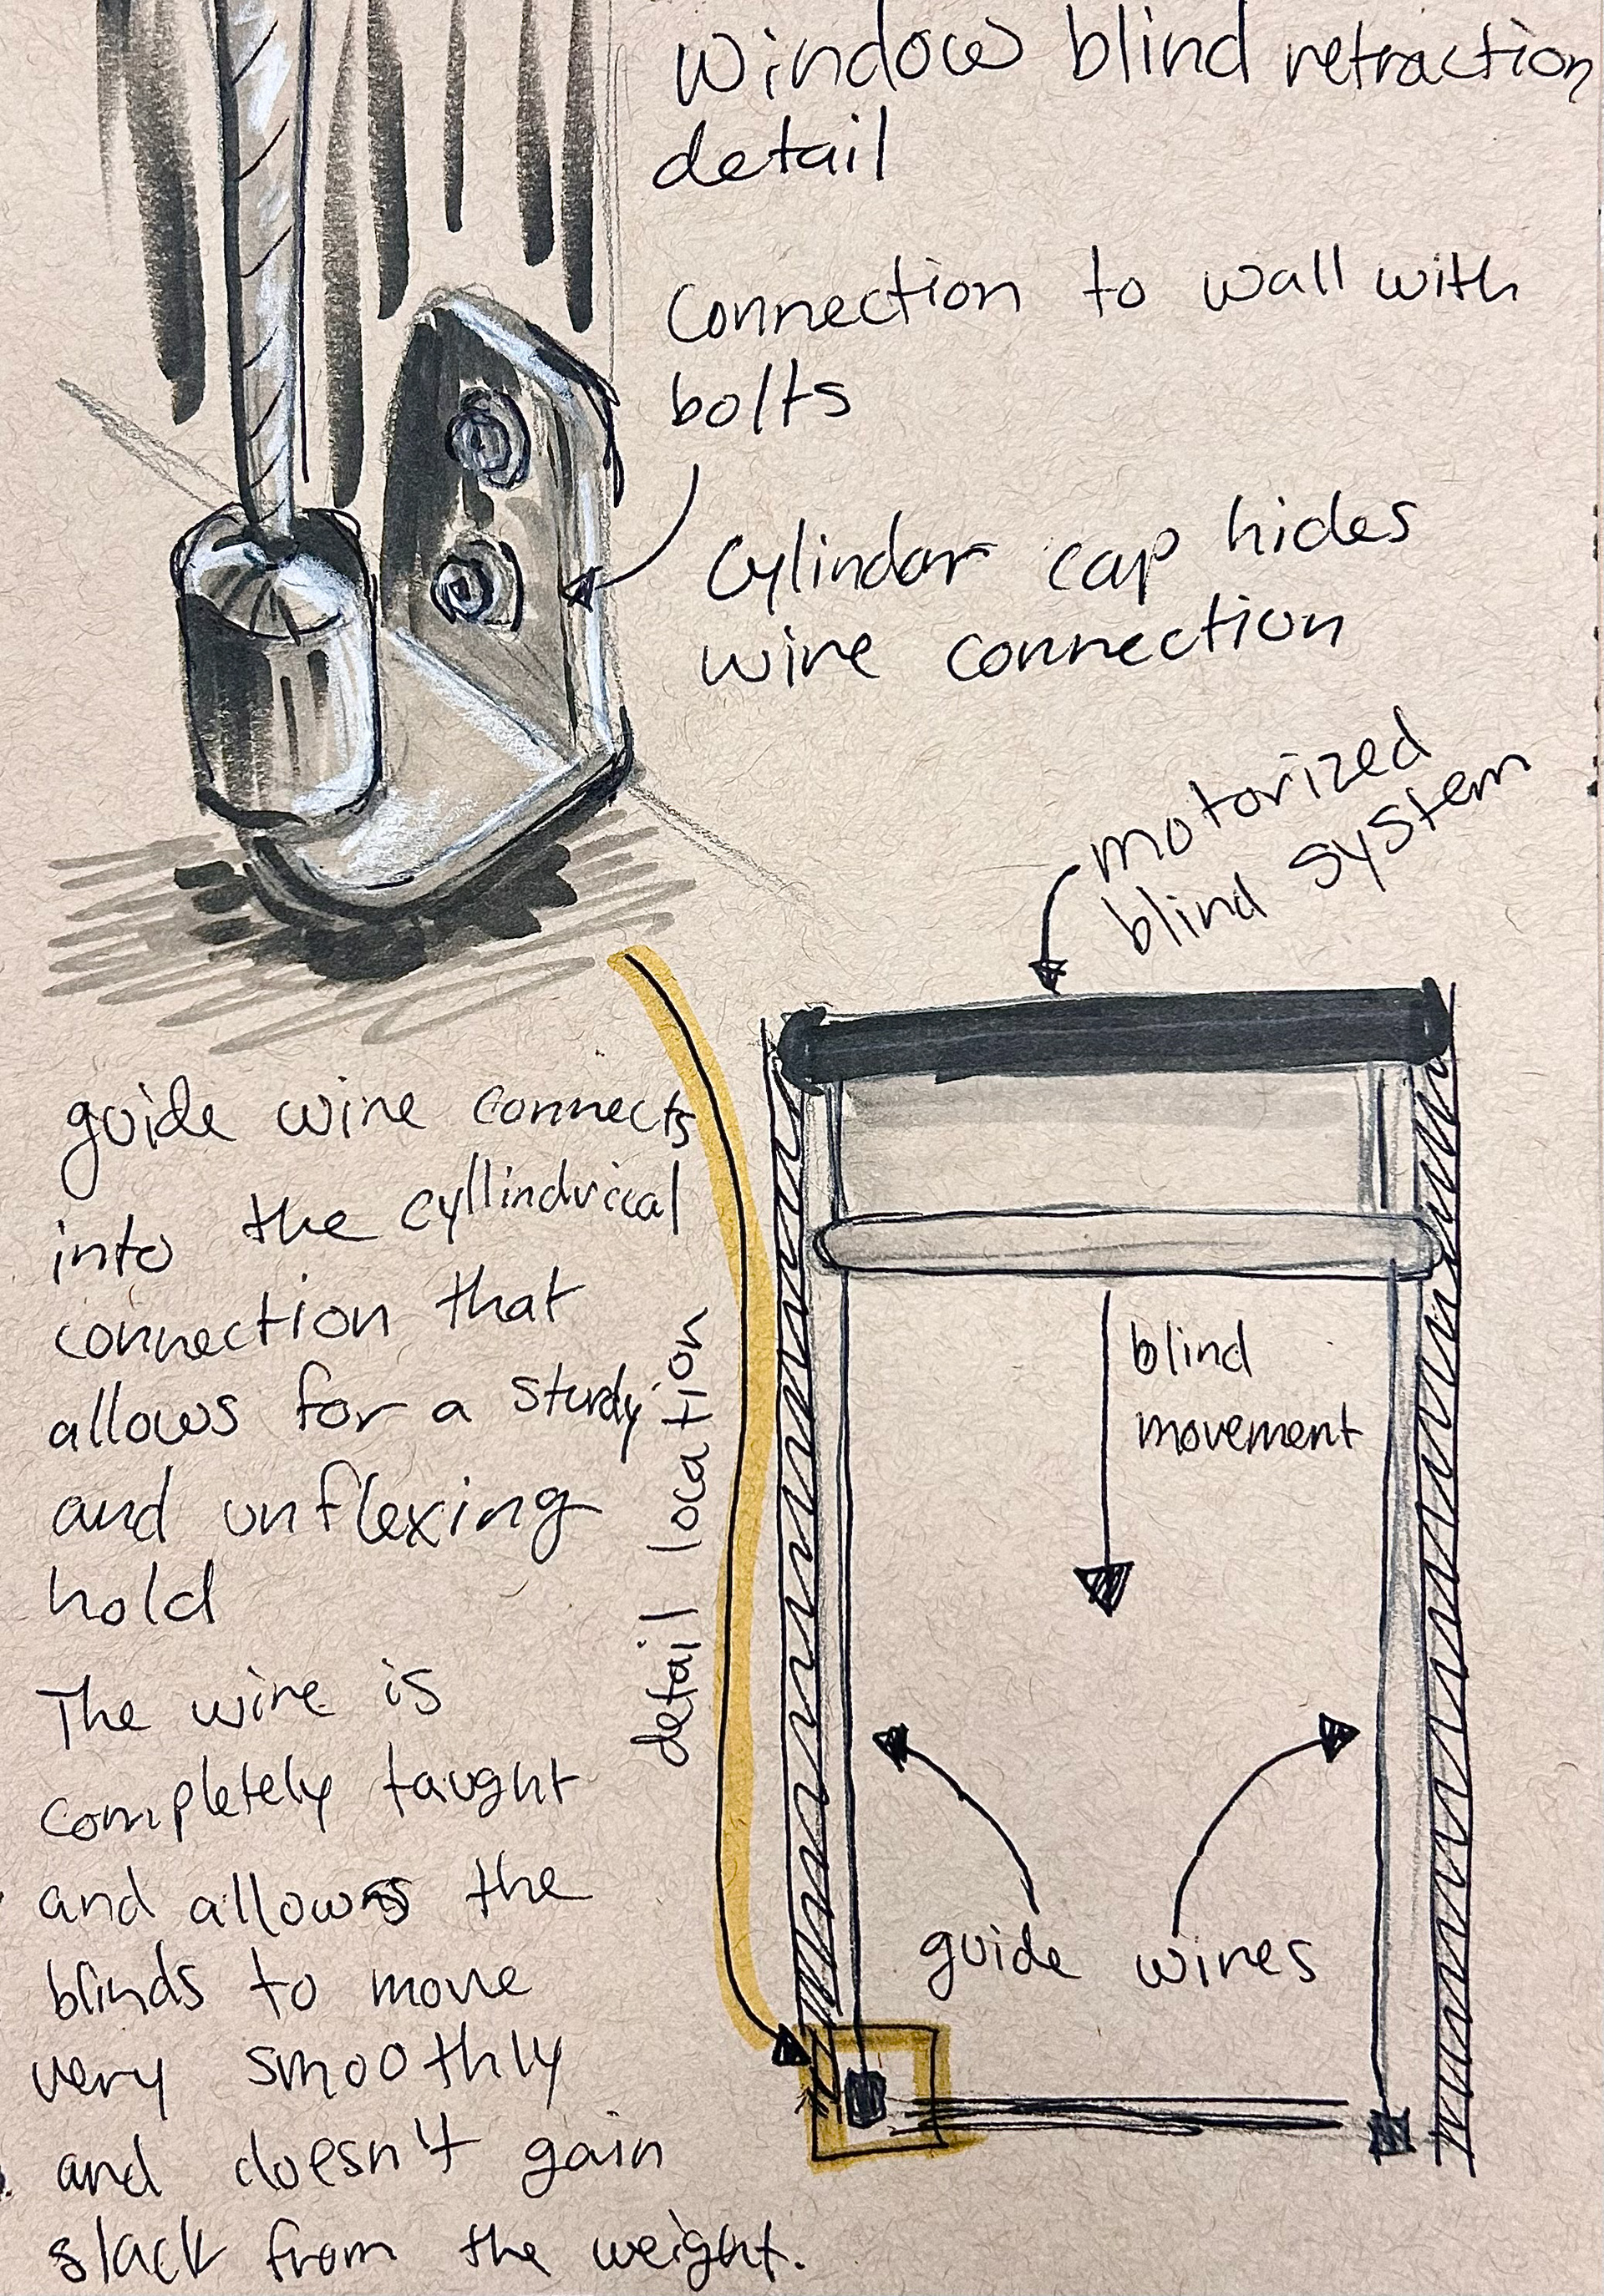 Window blind retraction
detail
Connection to wall with
bolts
Cylindar cap hides
wire connection
motorized
blind system
guide wire connects
into the cyllindrical
connection that
allows for a sturdy
and unflexing
hold
The wire is
completely taught
and allows the
blinds to move
very smoothly
and doesn't gain
slack from the weight.
detail location
blind
movement
guide wires